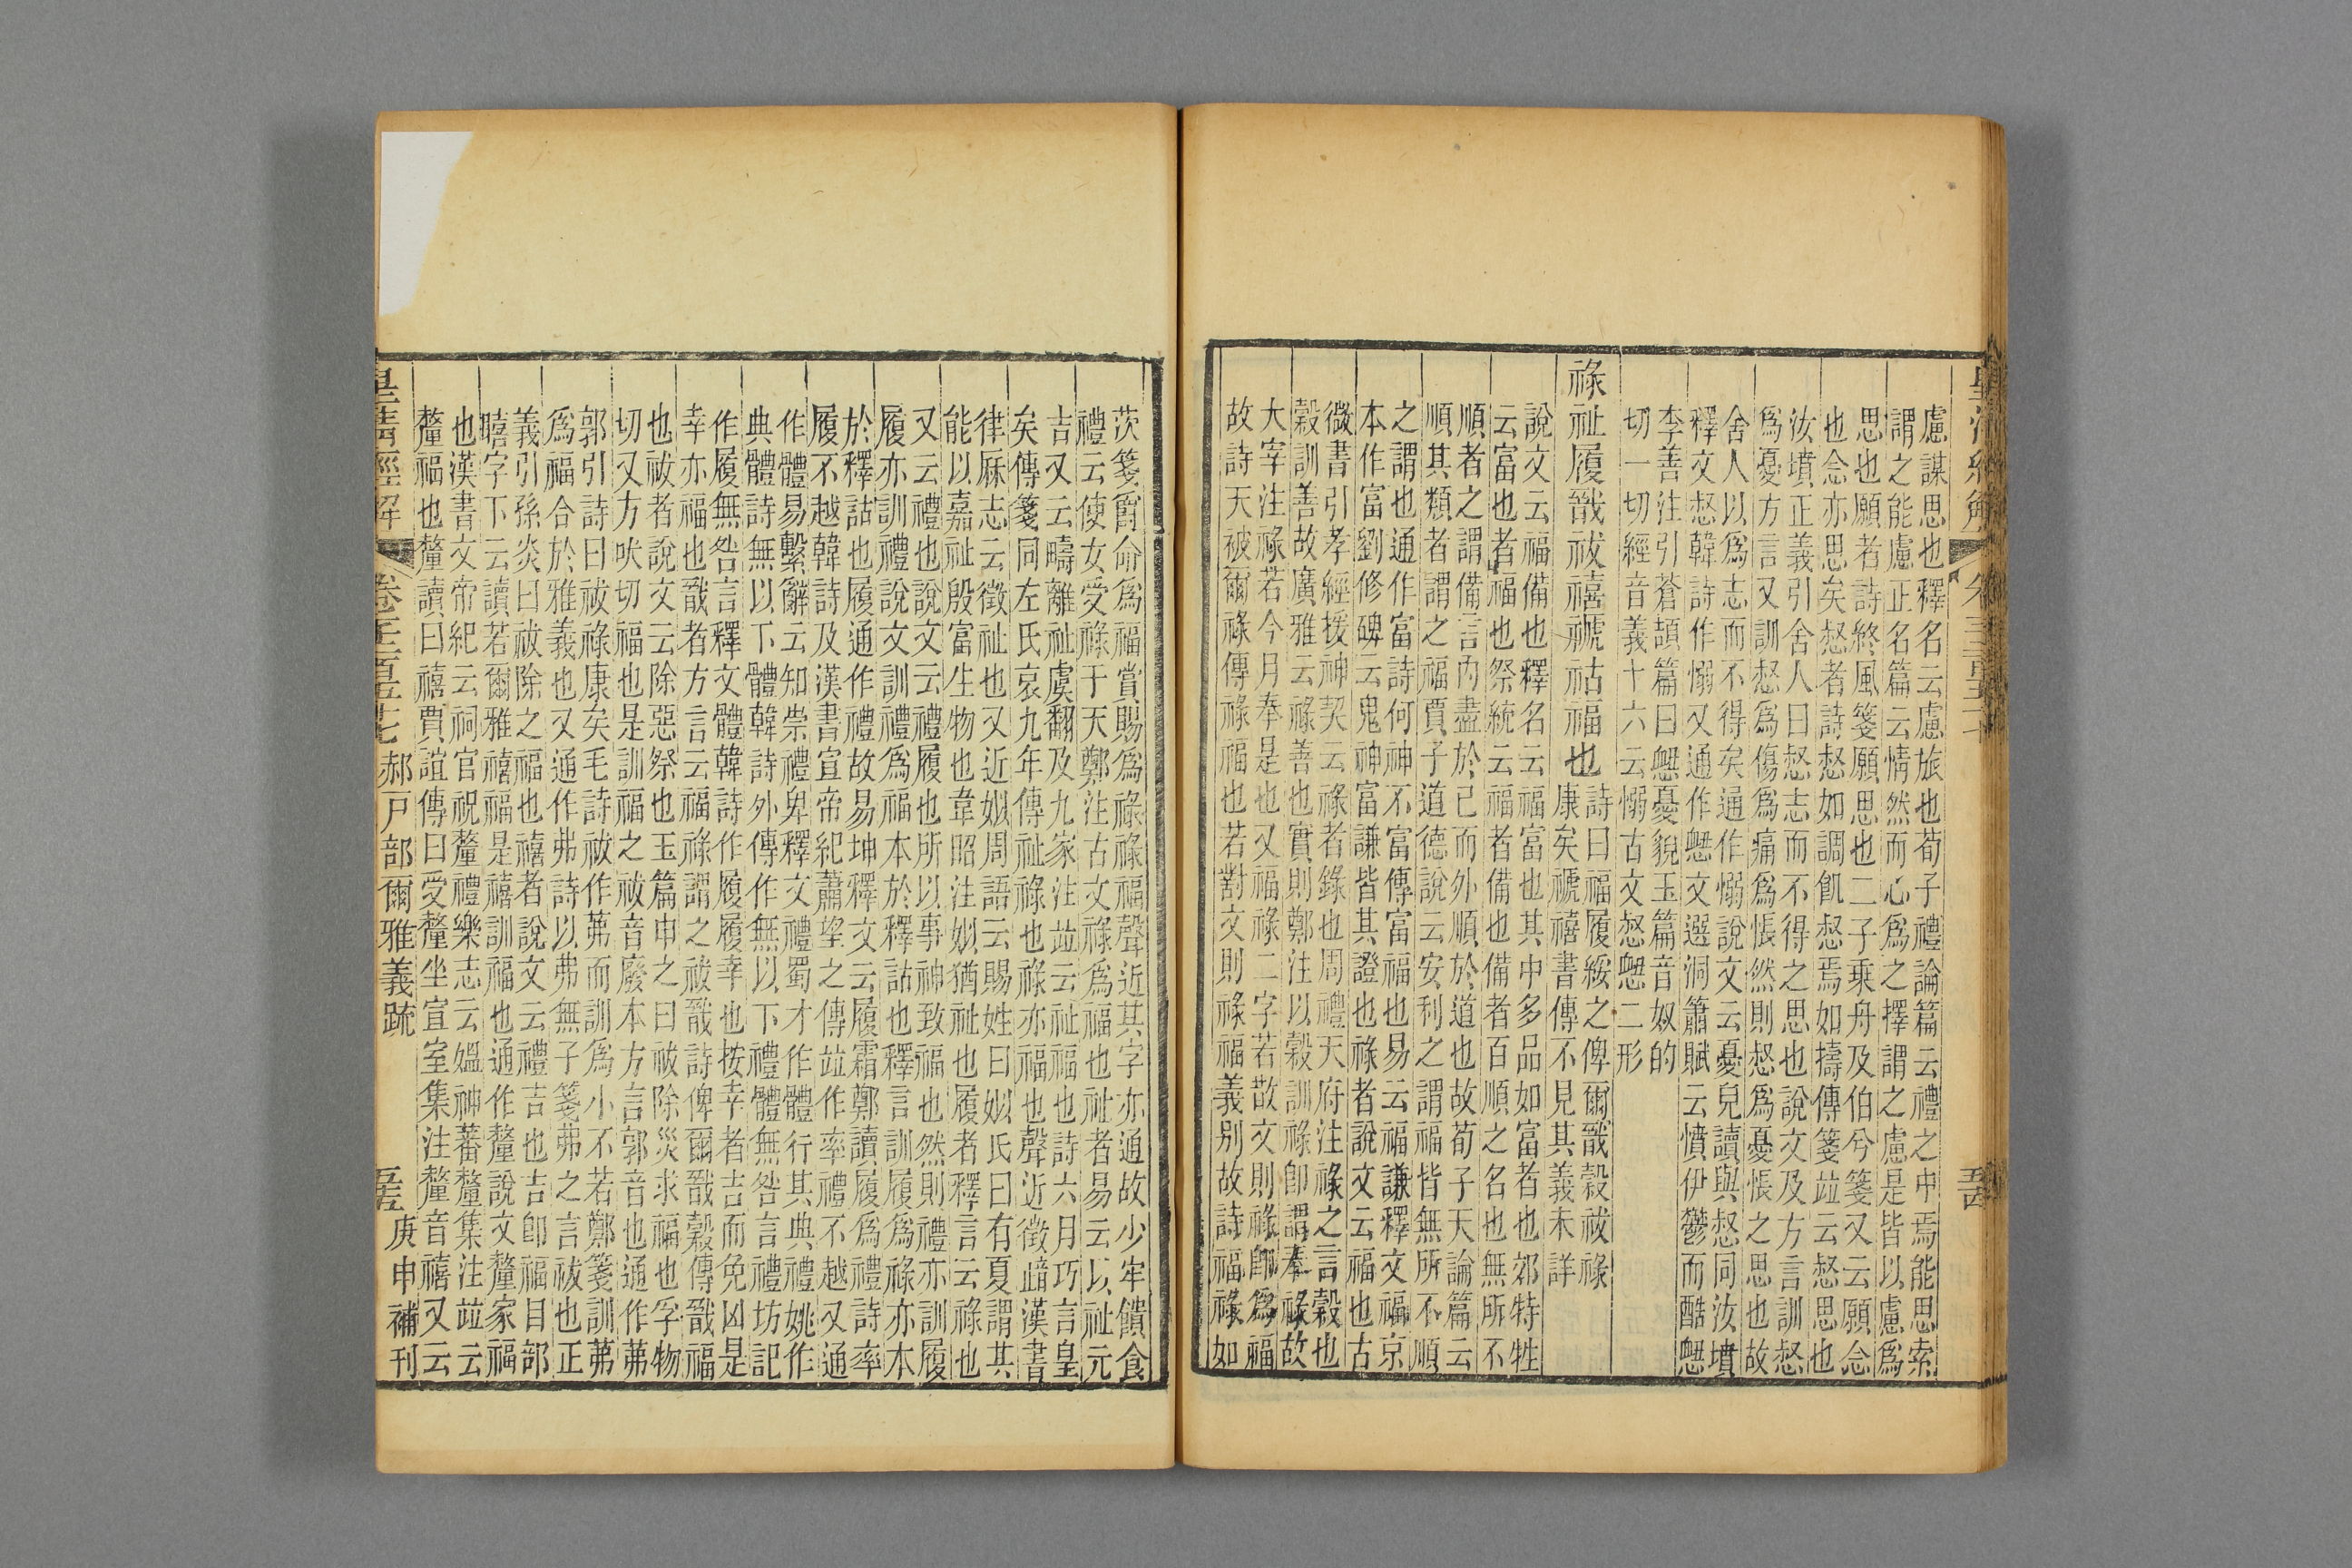 慮謀思也釋名云慮旅也荀子禮論篇云禮之中焉能思索
謂之能慮正名篇云情然而心爲之擇謂之慮是皆以慮爲
思也願者詩終風箋願思也二子乘舟及伯兮箋又云願念
也念亦思矣惄者詩惄如調飢惄焉如擣傳箋竝云惄思也
汝墳正義引舍人曰惄志而不得之思也說文及方言訓惄
爲憂方言又訓惄爲傷爲痛爲悵然則惄爲憂悵之思也故
舍人以爲志而不得矣通作愵說文云憂皃讀與惄同汝墳
釋文惄韓詩作愵又通作㥾文選洞簫賦云憤伊鬱而酷㥾
李善注引蒼頡篇曰㥾憂貌玉篇音奴的
切一切經音義十六云愵古文惄㥾二形
祿祉履戩祓禧禠祜福也
詩曰福履綏之俾爾戩穀祓祿
康矣禠禧書傳不見其義未詳
說文云福備也釋名云福富也其中多品如富者也郊特牲
云富也者福也祭統云福者備也備者百順之名也無所不
順者之謂備言內盡於己而外順於道也故荀子天論篇云
順其類者謂之福賈子道德說云安利之謂福皆無所不順
之謂也通作富詩何神不富傳富福也易云福謙釋文福京
本作富劉修碑云鬼神富謙皆其證也祿者說文云福也古
微書引孝經援神契云祿者錄也周禮天府注祿之言穀也
穀訓善故廣雅云祿善也實則鄭注以穀訓祿卽謂奉祿故
大宰注祿若今月奉是也又福祿二字若散文則祿卽爲福
故詩天被爾祿傳祿福也若對文則祿福義別故詩福祿如
茨箋爵命爲福賞賜爲祿祿福聲近其字亦通故少牢饋食
禮云使女受祿于天鄭注古文祿爲福也祉者易云以祉元
吉又云疇離祉虞翻及九家注竝云祉福也詩六月巧言皇
矣傳箋同左氏哀九年傳祉祿也祿亦福也聲近徵䜴漢書
律厤志云徵祉也又近姒周語云賜姓曰姒氏曰有夏謂其
能以嘉祉殷富生物也韋昭注姒猶祉也履者釋言云祿也
又云禮也說文云禮履也所以事神致福也然則禮亦訓履
履亦訓禮說文訓禮爲福本於釋詁也釋言訓履爲祿亦本
於釋詁也履通作禮故易坤釋文云履霜鄭讀履爲禮詩率
履不越韓詩及漢書宣帝紀蕭望之傳竝作率禮不越又通
作體易繫辭云知崇禮卑釋文禮蜀才作體行其典禮姚作
典體詩無以下體韓詩外傳作無以下禮體無咎言禮坊記
作履無咎言釋文體韓詩作履履幸也按幸者吉而免凶是
幸亦福也戩者方言云福祿謂之祓戩詩俾爾戩穀傳戩福
也祓者說文云除惡祭也玉篇申之曰祓除災求福也孚物
切又方吠切福也是訓福之祓音廢本方言郭音也通作茀
郭引詩曰祓祿康矣毛詩祓作茀而訓爲小不若鄭箋訓茀
爲福合於雅義也又通作弗詩以弗無子箋弗之言祓也正
義引孫炎曰祓除之福也禧者說文云禮吉也吉卽福目部
瞦字下云讀若爾雅禧福是禧訓福也通作釐說文釐家福
也漢書文帝紀云祠官祝釐禮樂志云媼神蕃釐集注竝云
釐福也釐讀曰禧賈誼傳曰受釐坐宣室集注釐音禧又云
皇清經解 郝戶部爾雅義疏 庚申補刊